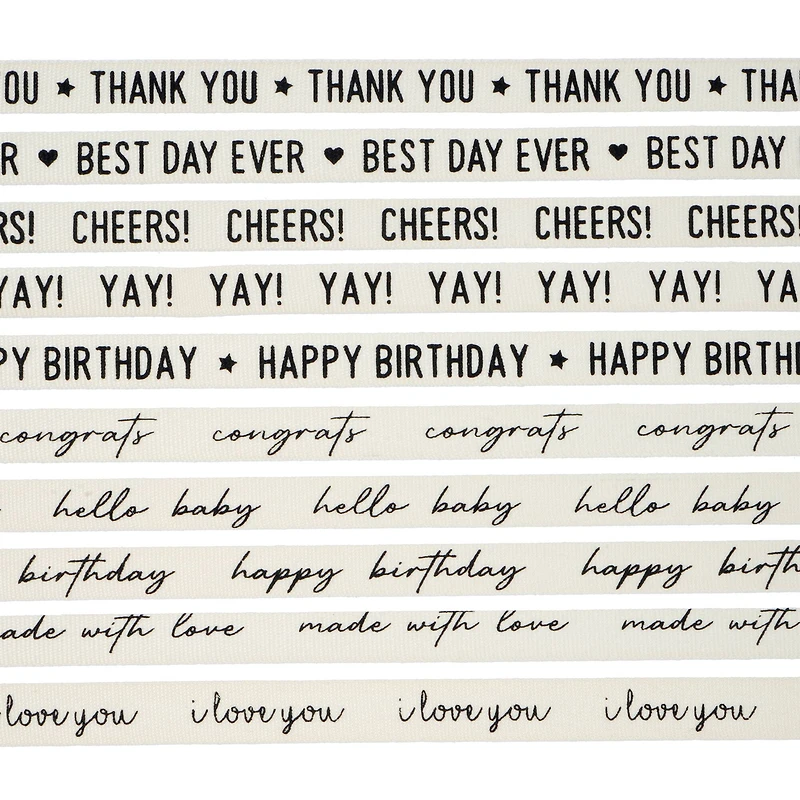 OU ★ THANK YOU ★ THANK YOU ★ THANK YOU ★ THA
R ♥ BEST DAY EVER ♥ BEST DAY EVER ♥ BEST DAY
RS! CHEERS! CHEERS! CHEERS! CHEERS! CHEERS!
YAY! YAY! YAY! YAY! YAY! YAY! YAY! YA
PY BIRTHDAY ★ HAPPY BIRTHDAY ★ HAPPY BIRTH
congrats congrats congrats congrats
hello baby hello baby hello baby
birthday happy birthday happy birth
ade with love made with love made with
love you i love you i love you i love you